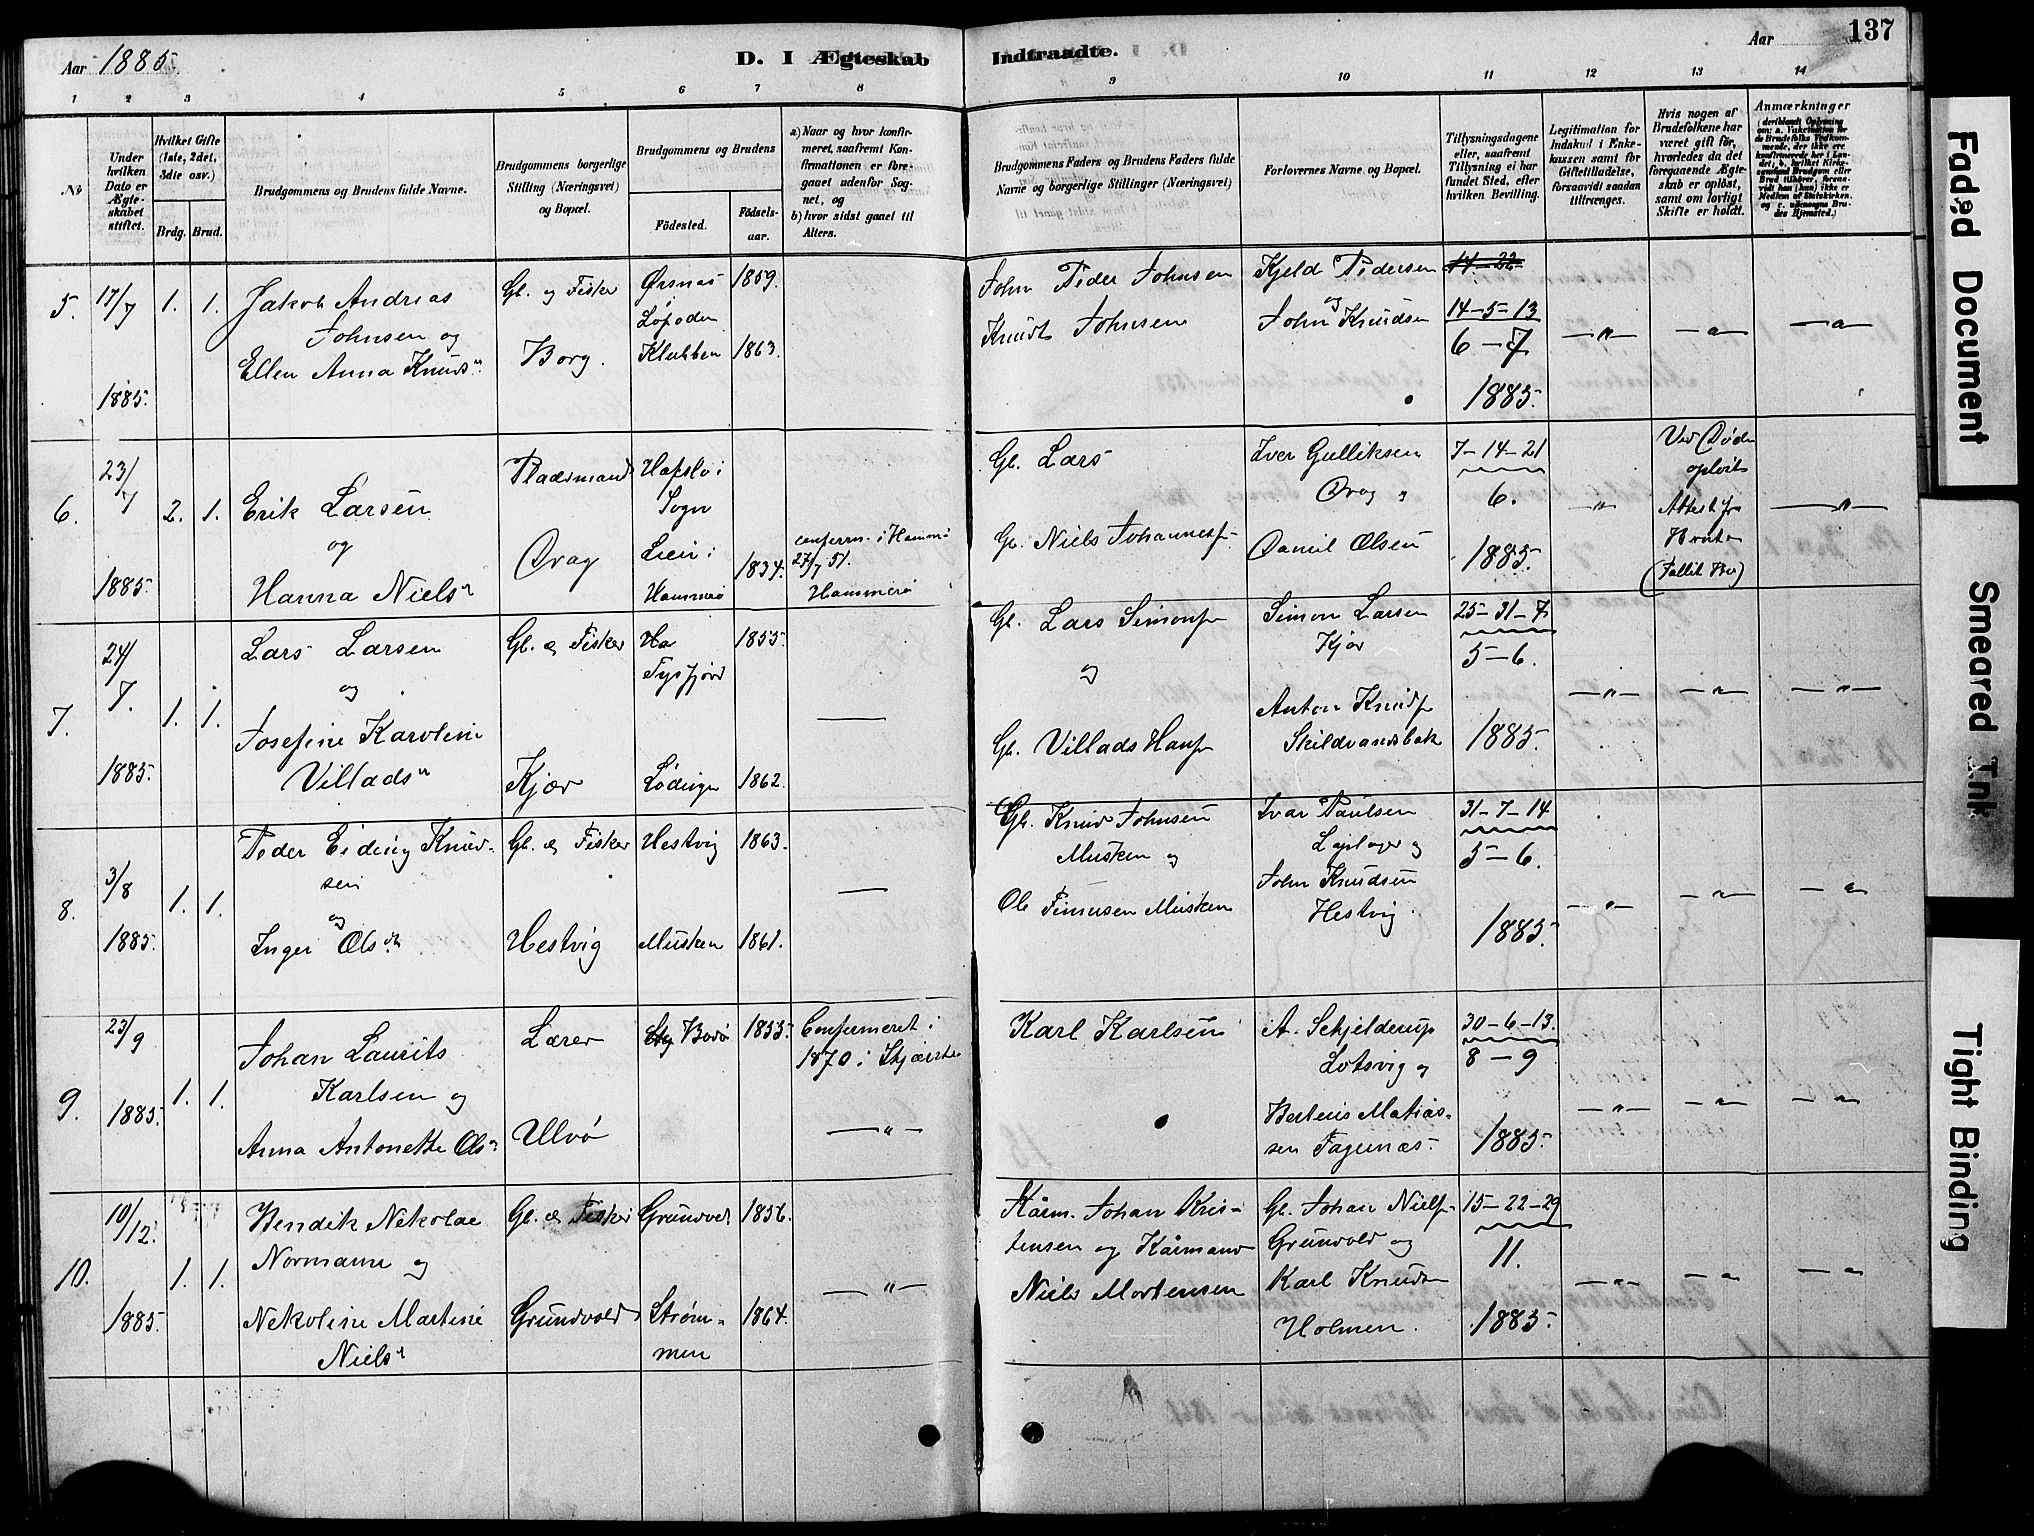 137
Aar 1885.
D. I Ægteskab Indtraadte.
Aar
1 2 3 4 5 6 7 8 9 10 11 12 13 14
No
Under hvilken Dato er Ægteskabet stiftet.
Hvilket Gifte (1ste, 2det, 3die osv.)
Brdg. Brud.
Brudgommens og Brudens fulde Navne.
Brudgommens borgerlige Stilling (Næringsvei) og Bopæl.
Brudgommens og Brudens
Födested.
Födselsaar.
a) Naar og hvor konfirmeret, saafremt Konfirmationen er foregaaet udenfor Sognet, og
b) hvor sidst gaaet til Alters.
Brudgommens Faders og Brudens Faders fulde Navne og borgerlige Stillinger (Næringsvei)
Forlovernes Navne og Bopæl.
Tillysningsdagene eller, saafremt Tillysning ei har fundet Sted, efter hvilken Bevilling.
Legitimation for Indskud i Enkekassen samt for Giftetilladelse, forsaavidt saadan tiltrænges.
Hvis nogen af Brudefolkene har været gift för, hvorledes da det foregaaende Ægteskab er oplöst, samt om lovligt Skifte er holdt.
Anmærkninger
5. 17/7 1885. 1. 1.
Jakob Andreas
Johnsen og
Ellen Anna Knuds
Gl. og Fisker
Borg.
Ørsnes
Lofoden
Klubben
1859.
1863.
John Peder Johnsen
Knudt Johnsen
Kjeld Pedersen
og
John Knudsen
14-22
14-5-13
6-7
1885.
6. 23/7 1885. 2. 1.
Erik Larsen
og
Hanna Niels
Pladsmand
Drag
Hafslo i
Sogn
Lien i
Hammerø
1834.
27/7 51.
Hammerø
Gl. Lars
Gl. Niels Johannes
Iver Gulliksen
Drag
Daniel Olsen
7-14-21
6.
1885.
Ved Døden
opløst
Attest fra
7. 24/7. 1885. 1. 1.
Lars Larsen
og
Josefine Karoline
Villads
Gl. & Fisker
Kjær
Tysfjord
Lödingen
1855.
1862.
Gl. Lars Simons
og
Gl. Villads Hans
Simon Larsen
Kjær
Anton Knuds
Skildvandsbak
25-31-7
5-6.
1885.
8. 3/8 1885. 1. 1.
Peder Eiding Knudsen
og
Inger Ols
Gl. & Fisker
Hestvig
Hestvig
Musken
1863.
1861.
Gl. Knud Johnsen
Musken og
Ole Simensen Musken
Ivar Paulsen
John Knudsen
Hestvig.
31-7-14
5-6.
1885.
9. 23/9 1885. 1. 1.
Johan Laurits
Karlsen og
Anna Antonette Ols
Lærer
Ulvø
Bodø
1855.
Confirmeret i
1870 i Skjærstad
Karl Karlsen
A. Schjelderup
Lotsvig og
Berteus Matias-
sen Fagernæs.
30-6-13.
8-9
1885.
10. 10/12. 1885. 1. 1.
Hendik Nekolai
Normann og
Nekoline Martine
Niels
Gl. & Fisker
Grundvold
Grundvold
Strøm-
men
1856.
1864.
Kårm. Johan Kris-
tensen og Kårmand
Niels Mortensen
Gl. Johan Niels
Grundvold og
Karl Knudsen
Holmen.
15-22-29
11.
1885.
Faded Document
Smeared Ink
Tight Binding